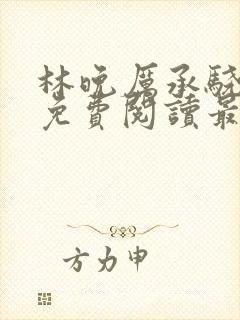 林晚厲承驍
免費閱讀最
方力申